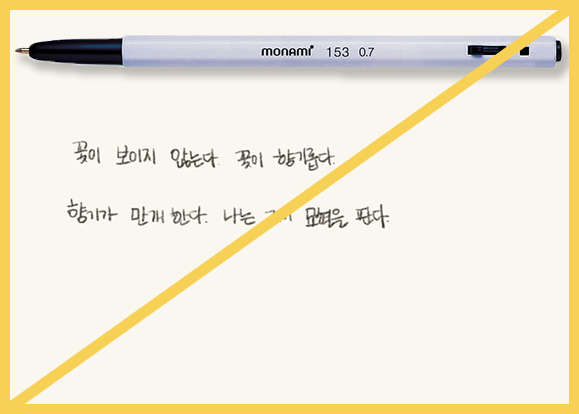 monami 153 0.7
꽃이 보이지 않는다. 꽃이 향기롭다.
향기가 만개한다. 나는 묘혈을 판다.